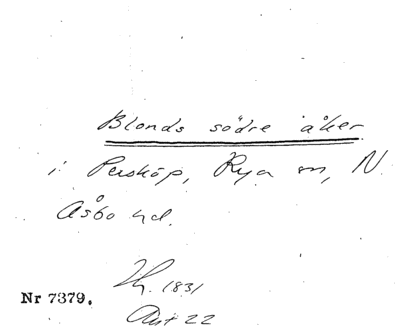 Blonds södre åker
i Persköp, Rya sn, N.
Åsbo hd.
Nr 7379.
1831
Akt 22